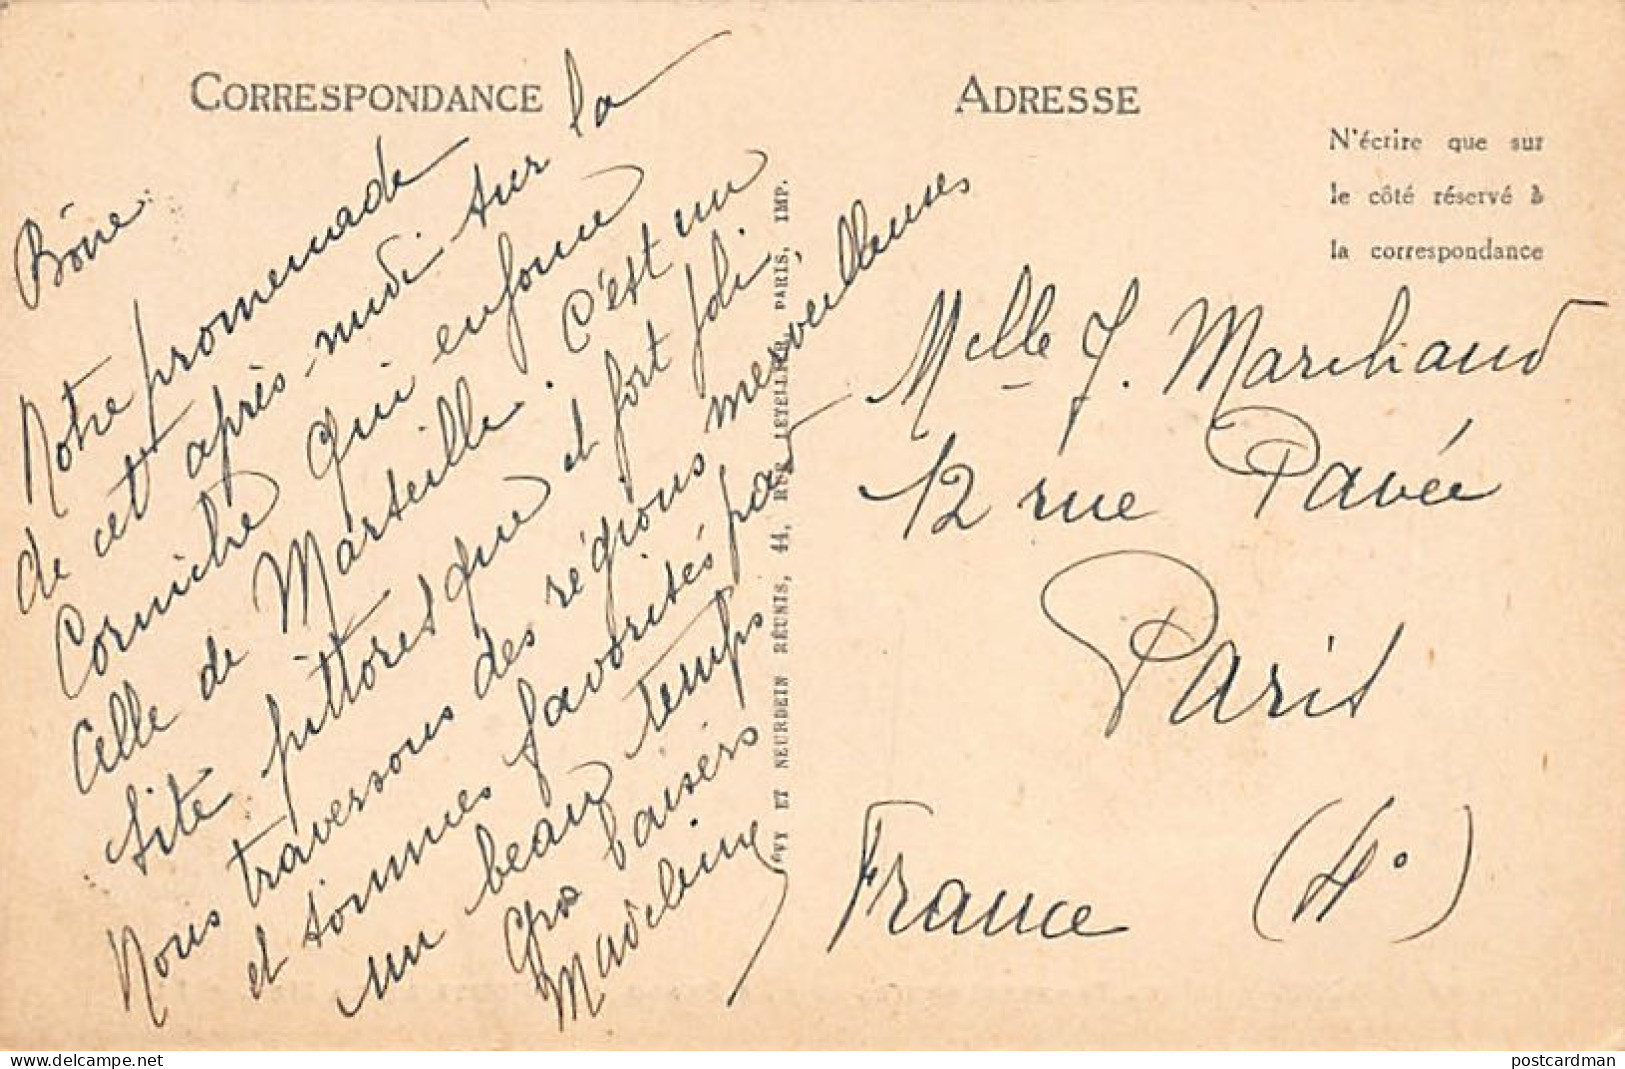 CORRESPONDANCE
Bône
Notre promenade
de cet après-midi sur la
Corniche qui enfonce
celle de Marseille. C'est un
site pittoresque et fort joli.
Nous traversons des régions merveilleuses
et sommes favorisés par
un beau temps
Gros baisers
Madeleine
LÉVY ET NEURDEIN RÉUNIS, 44, RUE LETELLIER, PARIS, IMP.
ADRESSE
N'écrire que sur
le côté réservé à
la correspondance
Melle J. Marchand
12 rue Pavée
Paris
France (4°)
postcardman